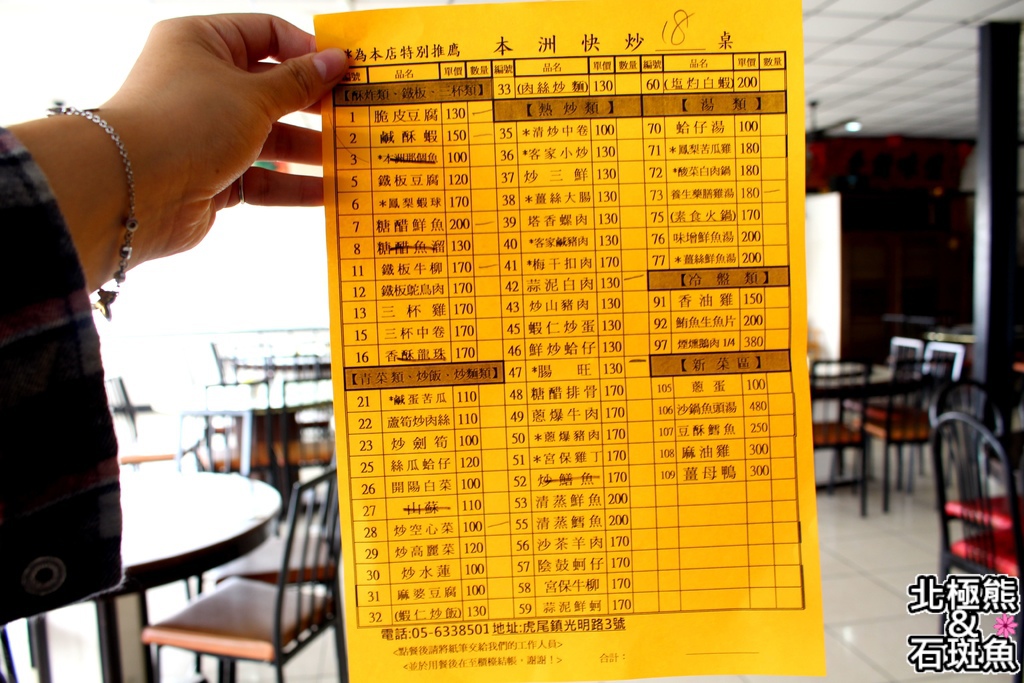 *為本店特別推薦 本洲快炒 18 桌
編號 品名 單價 數量
【酥炸類、鐵板、三杯類】
1 脆皮豆腐 130
2 鹹酥蝦 150
3 *本洲那個魚 100
5 鐵板豆腐 120
6 *鳳梨蝦球 170
7 糖醋鮮魚 200
8 糖醋魚溜 130
11 鐵板牛柳 170
12 鐵板鴕鳥肉 170
13 三杯雞 170
15 三杯中卷 170
16 香酥龍珠 170
【青菜類、炒飯、炒麵類】
21 *鹹蛋苦瓜 110
22 蘆筍炒肉絲 110
23 炒劍筍 100
25 絲瓜蛤仔 120
26 開陽白菜 100
27 山蘇 110
28 炒空心菜 100
29 炒高麗菜 120
30 炒水蓮 100
31 麻婆豆腐 100
32 (蝦仁炒飯) 130
編號 品名 單價 數量
33 (肉絲炒麵) 130
【熱炒類】
35 *清炒中卷 100
36 *客家小炒 130
37 炒三鮮 130
38 *薑絲大腸 130
39 塔香螺肉 130
40 *客家鹹豬肉 130
41 *梅干扣肉 130
42 蒜泥白肉 130
43 炒山豬肉 130
45 蝦仁炒蛋 130
46 鮮炒蛤仔 130
47 *腸旺 130
48 糖醋排骨 170
49 蔥爆牛肉 170
50 *蔥爆豬肉 170
51 *宮保雞丁 170
52 炒鱔魚 170
53 清蒸鮮魚 200
55 清蒸鱈魚 200
56 沙茶羊肉 170
57 陰鼓蚵仔 170
58 宮保牛柳 170
59 蒜泥鮮蚵 170
編號 品名 單價 數量
60 (塩灼白蝦) 200
【湯類】
70 蛤仔湯 100
71 *鳳梨苦瓜雞 180
72 *酸菜白肉鍋 180
73 養生藥膳雞湯 180
75 (素食火鍋) 170
76 味增鮮魚湯 200
77 *薑絲鮮魚湯 200
【冷盤類】
91 香油雞 150
92 鮪魚生魚片 200
97 煙燻鵝肉 1/4 380
【新菜區】
105 蔥蛋 100
106 沙鍋魚頭湯 480
107 豆酥鱈魚 250
108 麻油雞 300
109 薑母鴨 300
電話:05-6338501 地址:虎尾鎮光明路3號
<點餐後請將紙筆交給我們的工作人員>
<並於用餐後在至櫃檯結帳。謝謝！> 合計：
北極熊
&
石斑魚